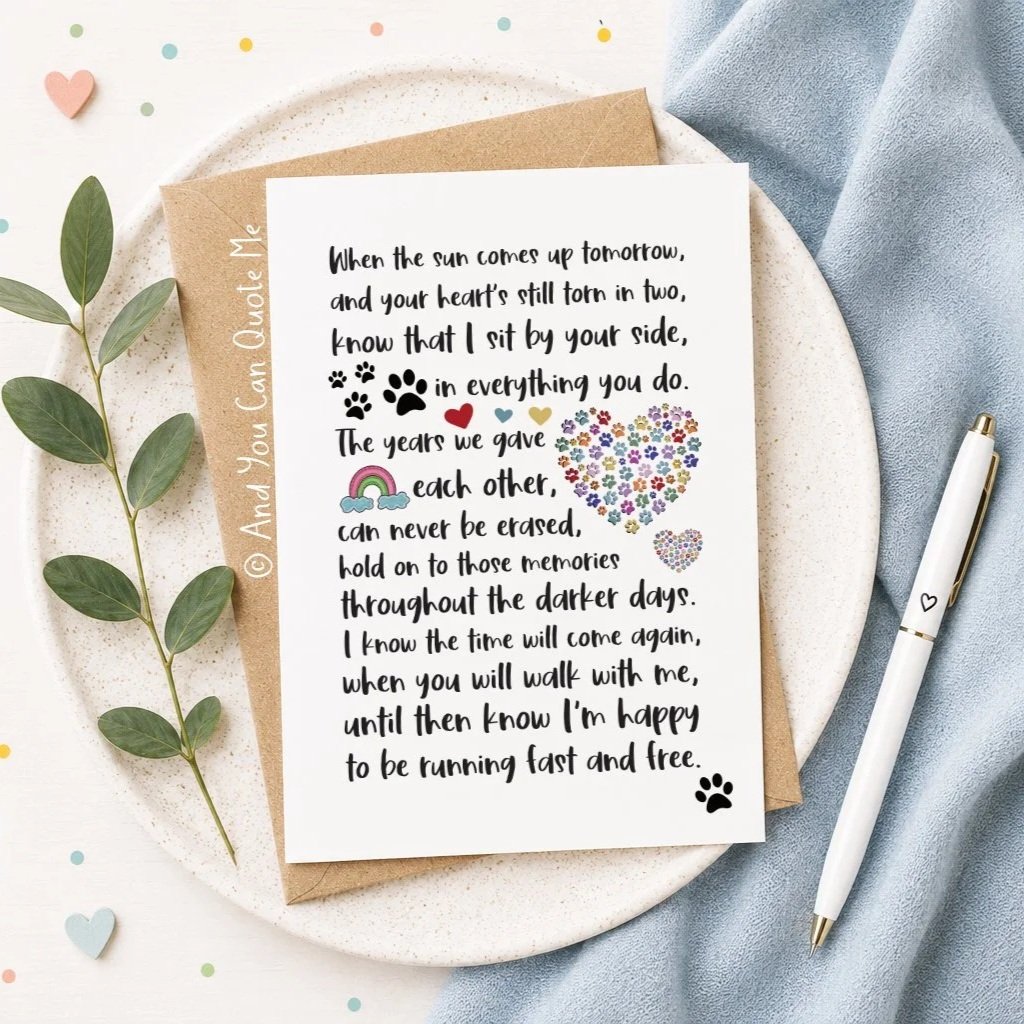 © And You Can Quote Me
When the sun comes up tomorrow,
and your heart's still torn in two,
know that I sit by your side,
in everything you do.
The years we gave
each other,
can never be erased,
hold on to those memories
throughout the darker days.
I know the time will come again,
when you will walk with me,
until then know I'm happy
to be running fast and free.